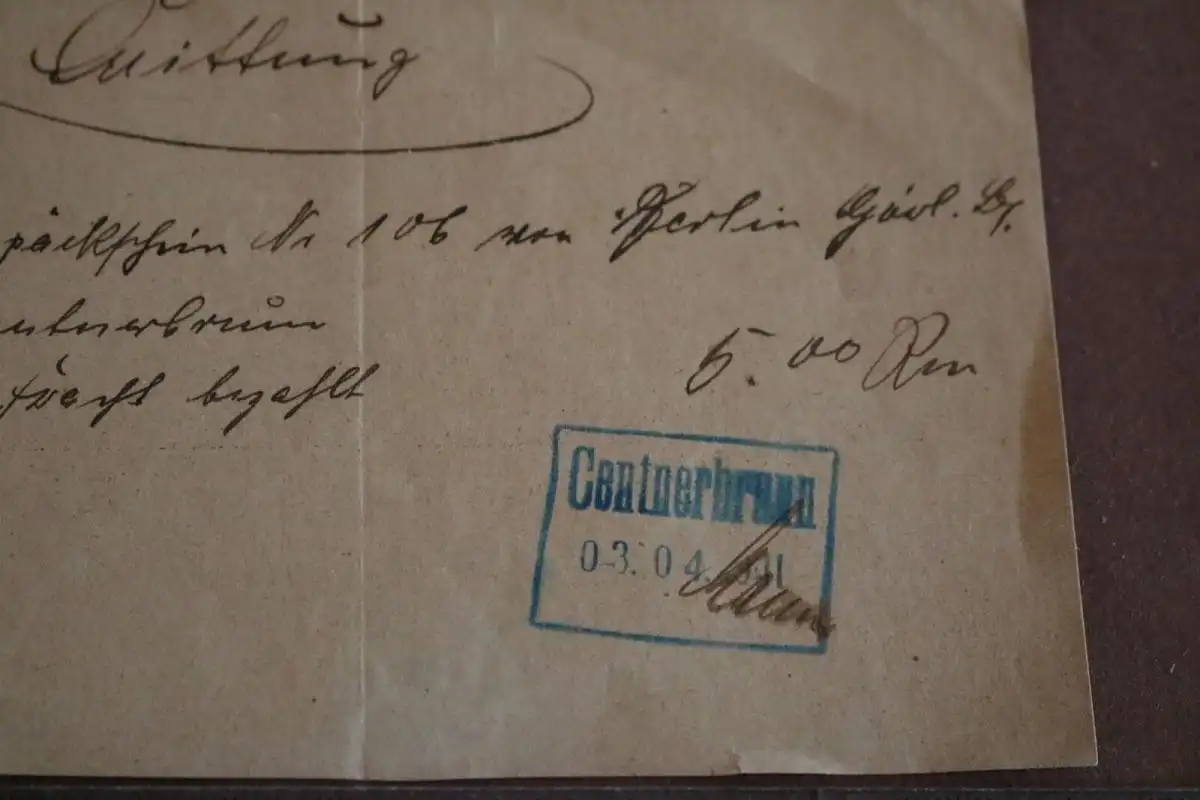 Quittung
päckschein Nr 106 von Berlin Görl. Bf.
ntnerbrunn
5.00 Rm
fracht bezahlt
Centnerbrunn
03. 04.